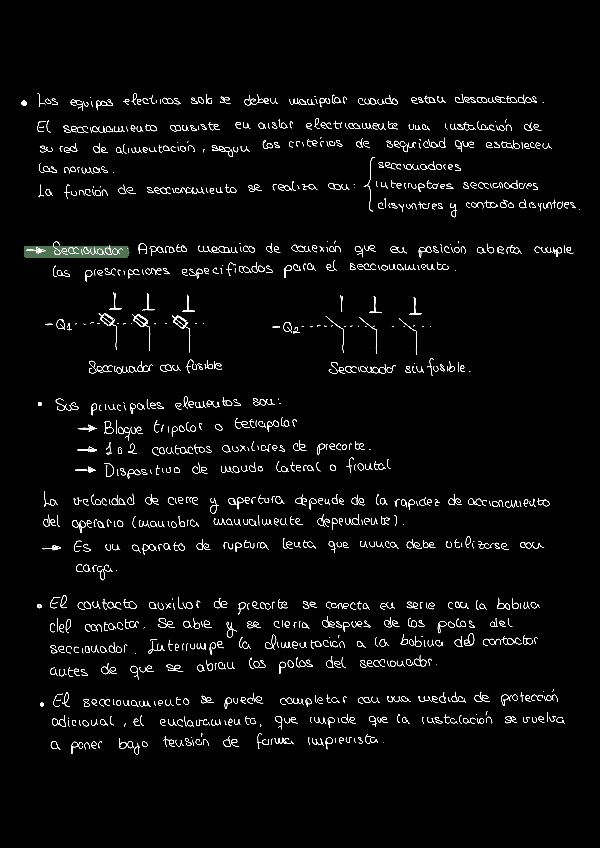 • Los equipos electricos solo se deben manipolar cuando estan desconectados.
El seccionamiento consiste en aislar electricamente una instalación de
su red de alimentación, segun los criterios de seguridad que establecen
las normas.
La función de seccionamiento se realiza con: { seccionadores
interruptores seccionadores
disyuntores y contacto disyuntores.
→ Seccionador: Aparato mecanico de conexión que en posición abierta cumple
las prescripciones especificadas para el seccionamiento.
-Q1
-Q2
Seccionador con fusible
Seccionador sin fusible.
• Sus principales elementos son:
→ Bloque tripolar o tetrapolar
→ 1 o 2 contactos auxiliares de precorte.
→ Dispositivo de mando lateral o frontal
La velocidad de cierre y apertura depende de la rapidez de accionamiento
del operario (maniobra manualmente dependiente).
→ Es un aparato de ruptura lenta que nunca debe utilizarse con
carga.
• El contacto auxiliar de precorte se conecta en serie con la bobina
del contactor. Se abre y se cierra despues de los polos del
seccionador. Interrumpe la alimentación a la bobina del contactor
antes de que se abran los polos del seccionador.
• El seccionamiento se puede completar con una medida de protección
adicional, el enclavamiento, que impide que la instalación se vuelva
a poner bajo tensión de forma imprevista.